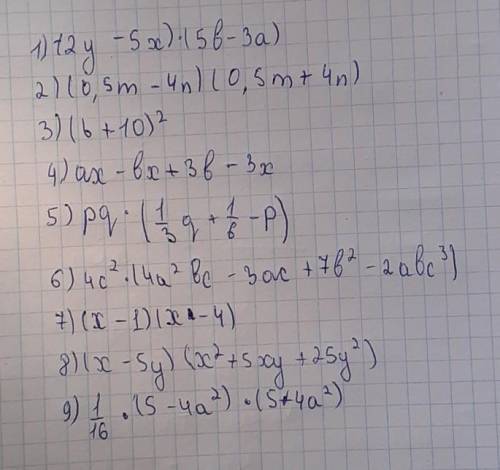 1) (2y - 5x)·(5в - 3a)
2) (0,5m - 4n)(0,5m + 4n)
3) (b + 10)²
4) ax - вx + 3в - 3x
5) pq·(1/3 q + 1/6 - p)
6) 4c²·(4a²вc - 3ac + 7в² - 2aвc³)
7) (x - 1)(x - 4)
8) (x - 5y)(x² + 5xy + 25y²)
9) 1/16 · (5 - 4a²)·(5+4a²)